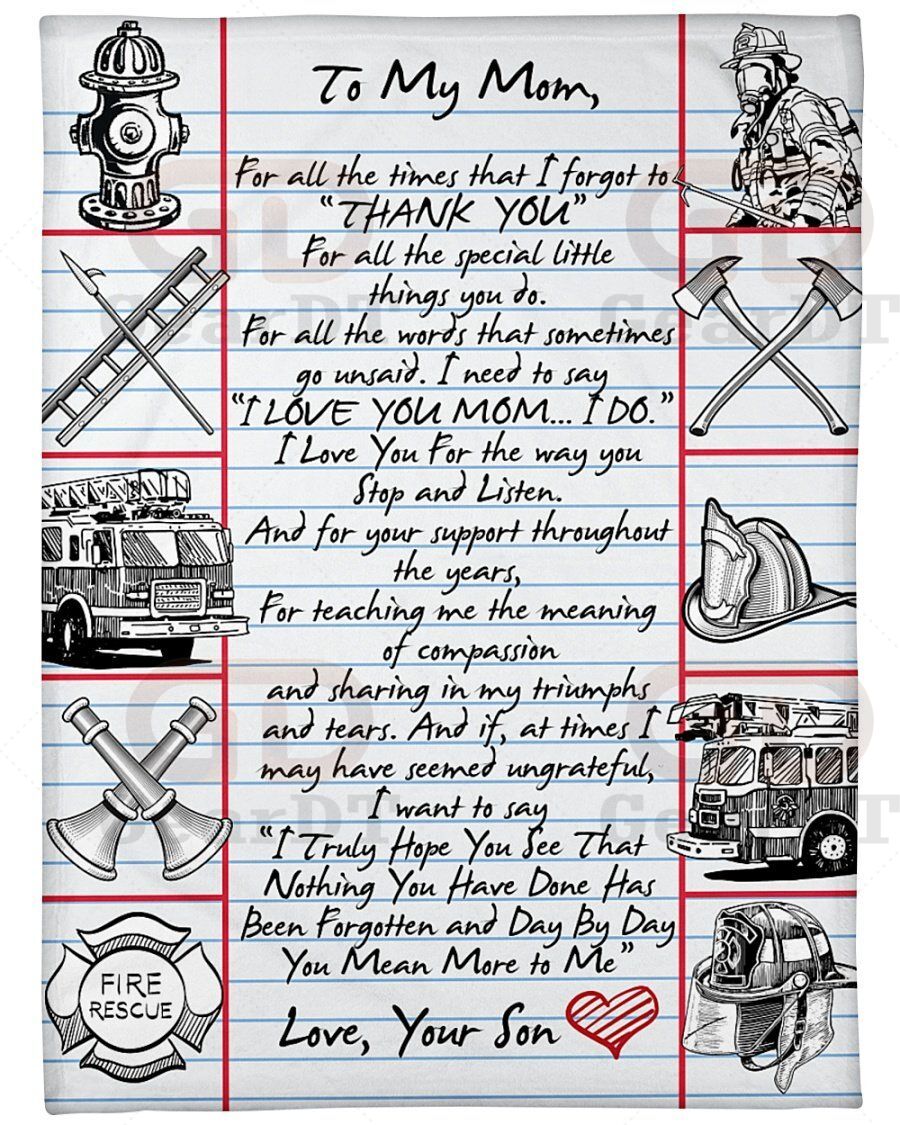 To My Mom,
For all the times that I forgot to
“THANK YOU”
For all the special little
things you do.
For all the words that sometimes
go unsaid. I need to say
“I LOVE YOU MOM... I DO.”
I Love You For the way you
Stop and Listen.
And for your support throughout
the years,
For teaching me the meaning
of compassion
and sharing in my triumphs
and tears. And if, at times I
may have seemed ungrateful,
I want to say
“I Truly Hope You See That
Nothing You Have Done Has
Been Forgotten and Day By Day
You Mean More to Me”
Love, Your Son
FIRE
RESCUE
GD
GearDT
GD
GearDT
GD
GearDT
GD
GearDT